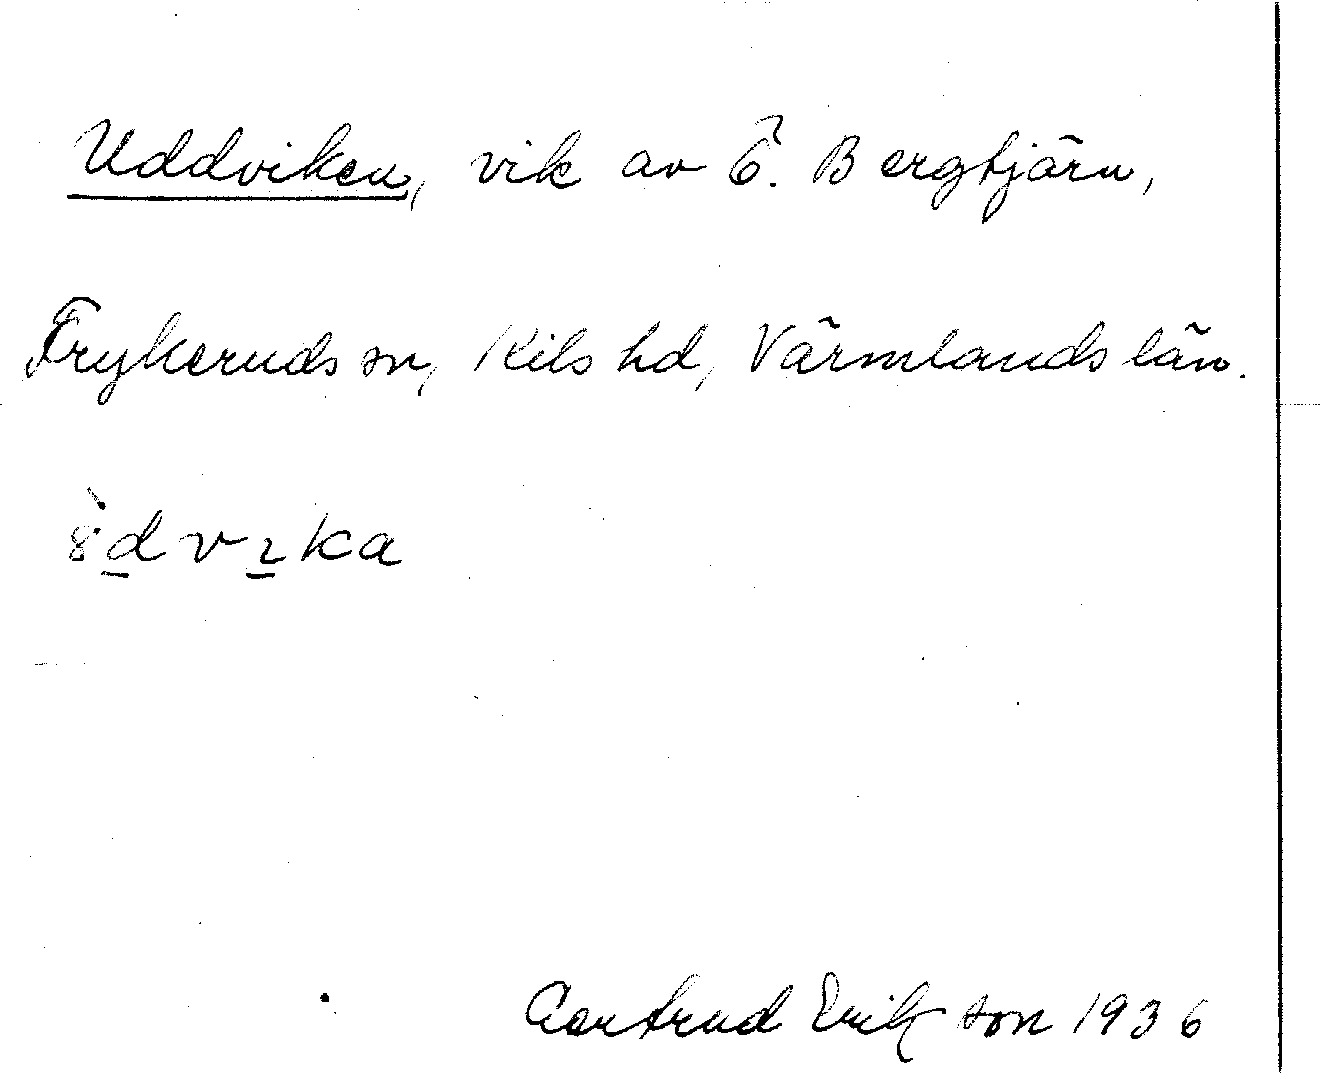 Uddviken, vik av Ö. Bergtjärn,
Frykeruds sn, Kils hd, Värmlands län.
8̀d̲vɪ̲ka
Gertrud Erikson 1936